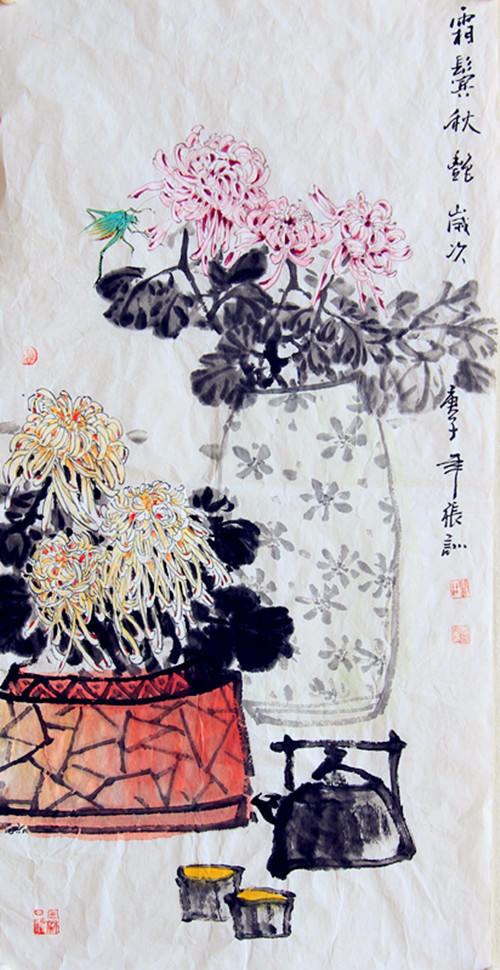 霜鬓秋艷歲次
庚子年張訓